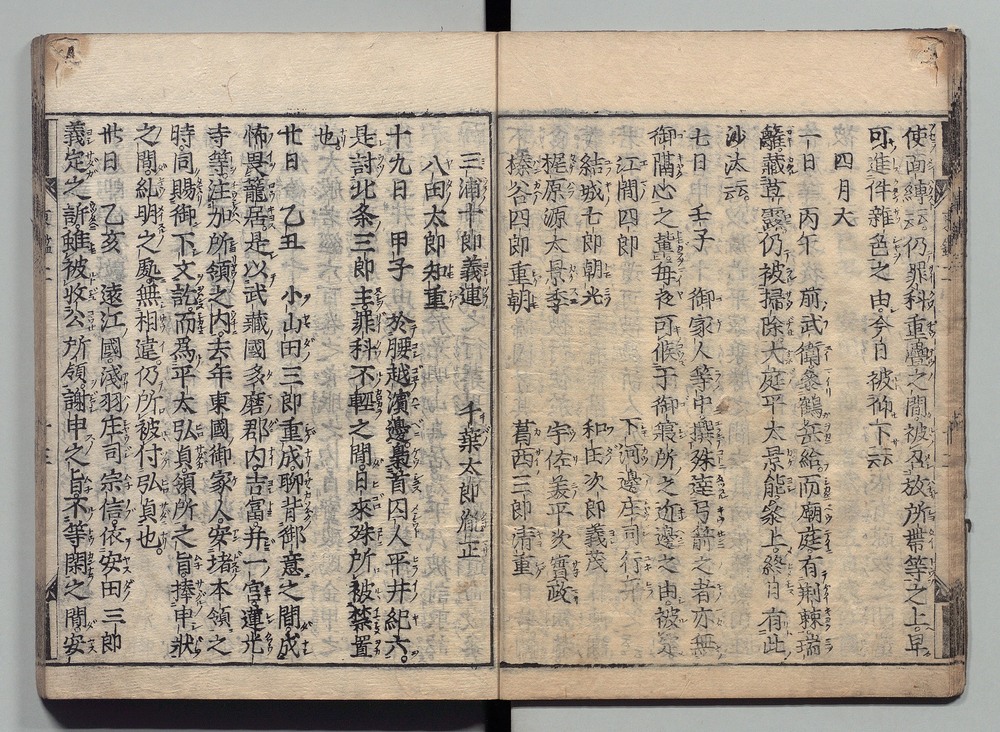 使面縛云云仍罪科重疊之間被召放所帶等之上早
可進件雜色之由今日被仰下云云
四月大
一日 丙午 前武衛参鶴岳給而廟庭有荊棘瑞
籬藏草露仍被掃除大庭平太景能參上終日有此
沙汰云云
七日 壬子 御家人等中撰殊達弓箭之者亦無
御隔心之輩毎夜可候于御寢所之近邊之由被定
江間四郎 下河邊庄司行平
結城七郎朝光 和田次郎義茂
梶原源太景季 宇佐美平次實政
榛谷四郎重朝 葛西三郎清重
三浦十郎義連 千葉太郎胤正
八田太郎知重
十九日 甲子 於腰越濱邊梟首囚人平井紀六。
是討北条三郎主罪科不輕之間。日來殊所被禁置
也
廿日 乙丑 小山田三郎重成聊背御意之間成
怖畏籠居是以武藏國多磨郡内。吉冨并一宮蓮光
寺等注加所領之内。去年東國御家人。安堵本領之
時。同賜御下文訖。而為平太弘貞。領所之旨捧申狀
之間。糺明之處。無相違。仍所被付弘貞也。
卅日 乙亥 遠江國。淺羽庄司宗信。依安田三郎
義定之訴雖被收公所領。謝申之旨。不等閑之間安
東鑑二
十三